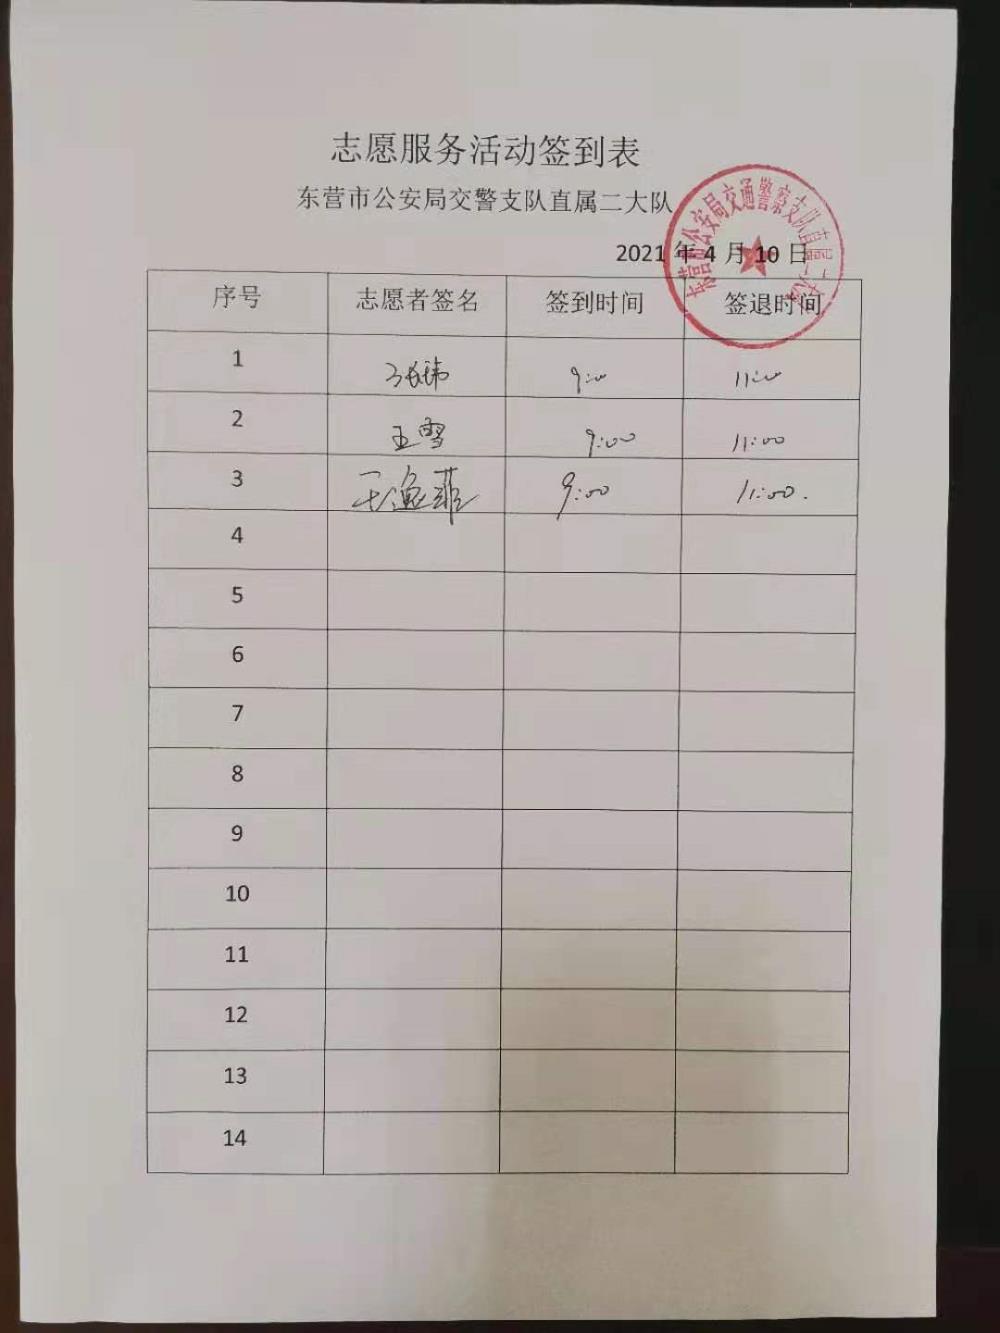 志愿服务活动签到表
东营市公安局交警支队直属二大队
东营市公安局交通警察支队直属二大队
2021 年 4 月 10 日
序号 志愿者签名 签到时间 签退时间
1 9:00 11:00
2 王雪 9:00 11:00
3 王逸菲 9:00 11:00.
4
5
6
7
8
9
10
11
12
13
14